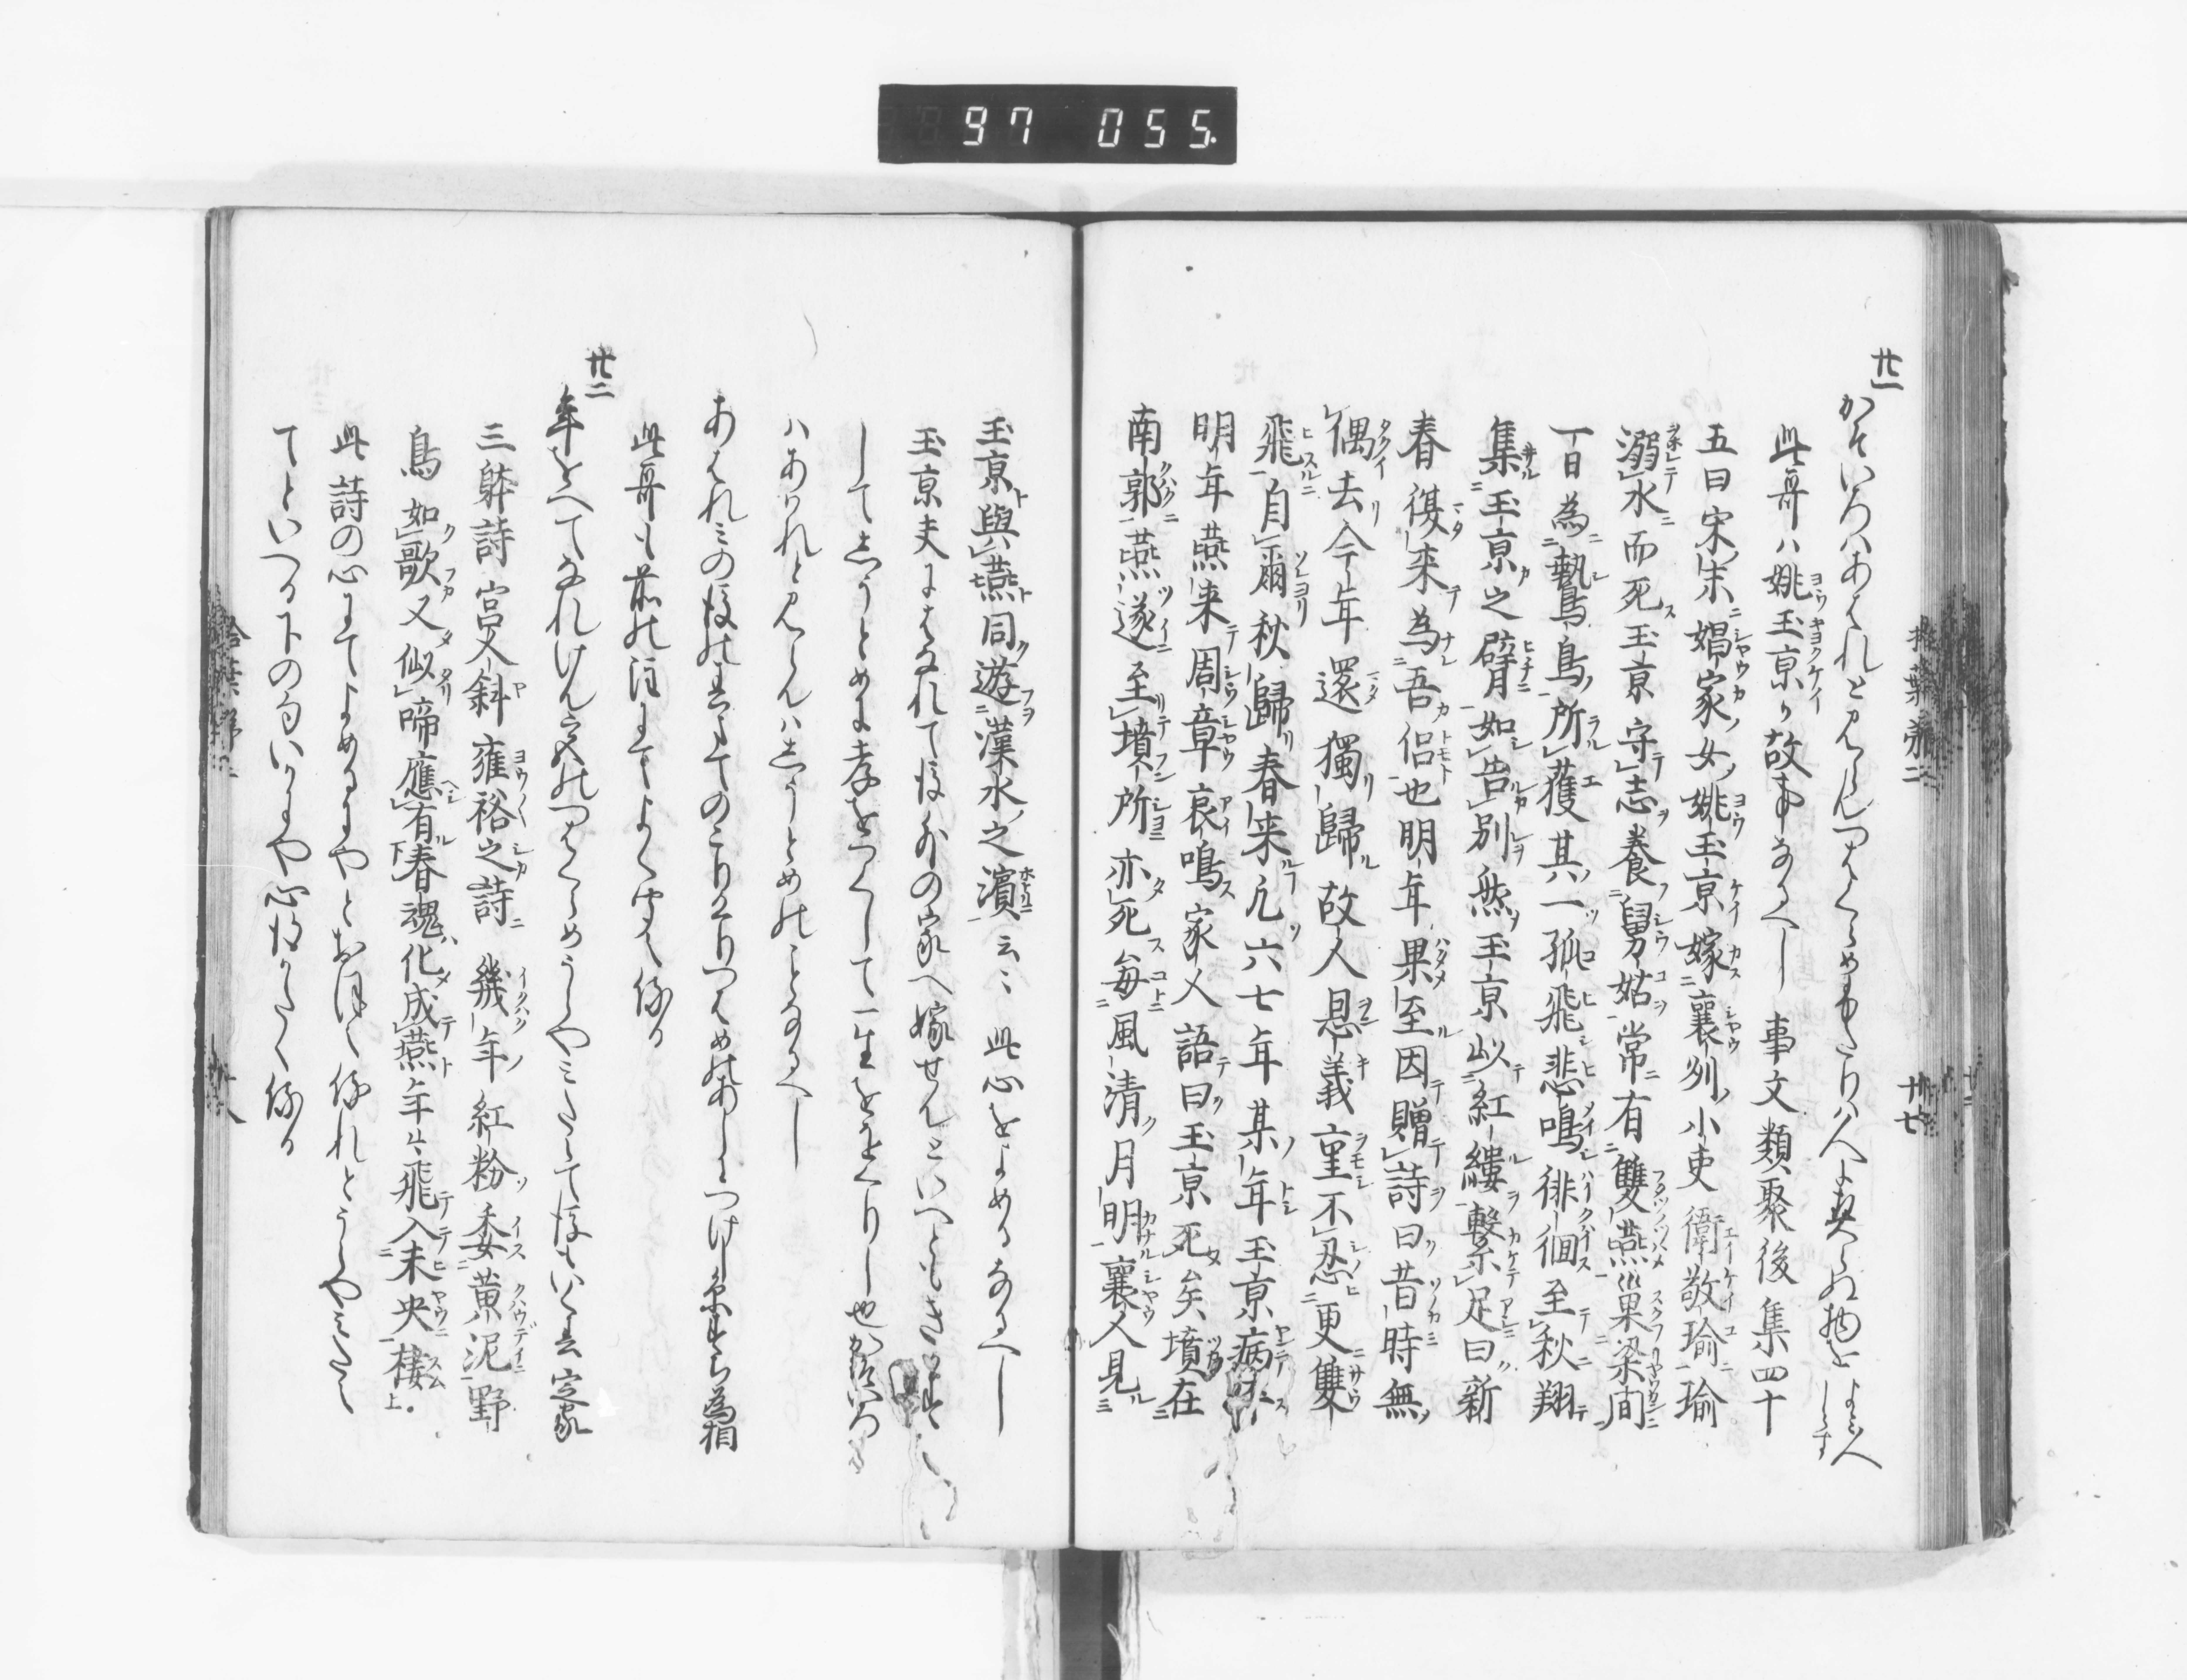 97 055
廿一
かそいろハあはれとみらんつはくらめすたり人に契らぬ物を よミ人しらす
此哥ハ姚玉京か故事なるへし 事文類聚後集四十
五曰宋末娼家女姚玉京嫁襄州小吏衛敬瑜瑜
溺水而死玉京守志養舅姑常有雙燕巣梁間
一日為鷙鳥所獲其一孤飛悲鳴徘徊至秋翔
集玉京之臂如告別然玉京以紅縷繋足曰新
春復来為吾侶也明年果至因贈詩曰昔時無
偶去今年還獨歸故人恩義重不忍更雙
飛自爾秋歸春来凡六七年某年玉京病
明年燕来周章哀鳴家人語曰玉京死矣墳在
南郭燕遂至墳所亦死毎風清月明襄人見
玉京與燕同遊漢水之濱云〻此心をよめるなるへし
玉京夫にはなれて後外の家へ嫁せんといへともき
してしうとめに孝をつくして一生をゝくりし也かそいろ
ハあはれとみらんハしうとめのことなるへし
あはれミの後の
此哥も前の注にてよく聞え侍る
廿二
年をへてなれけん宮のつはくらめうらやミたて後もいく春 定家
三躰詩宮人斜雍裕之詩幾年紅粉委黄泥野
鳥如歌又似啼應有春魂化成燕年〻飛入未央棲
此詩の心にてよめるにやとおほえ侍れとうらやミたえ
てといへる下の句いかにや心得かたく侍る